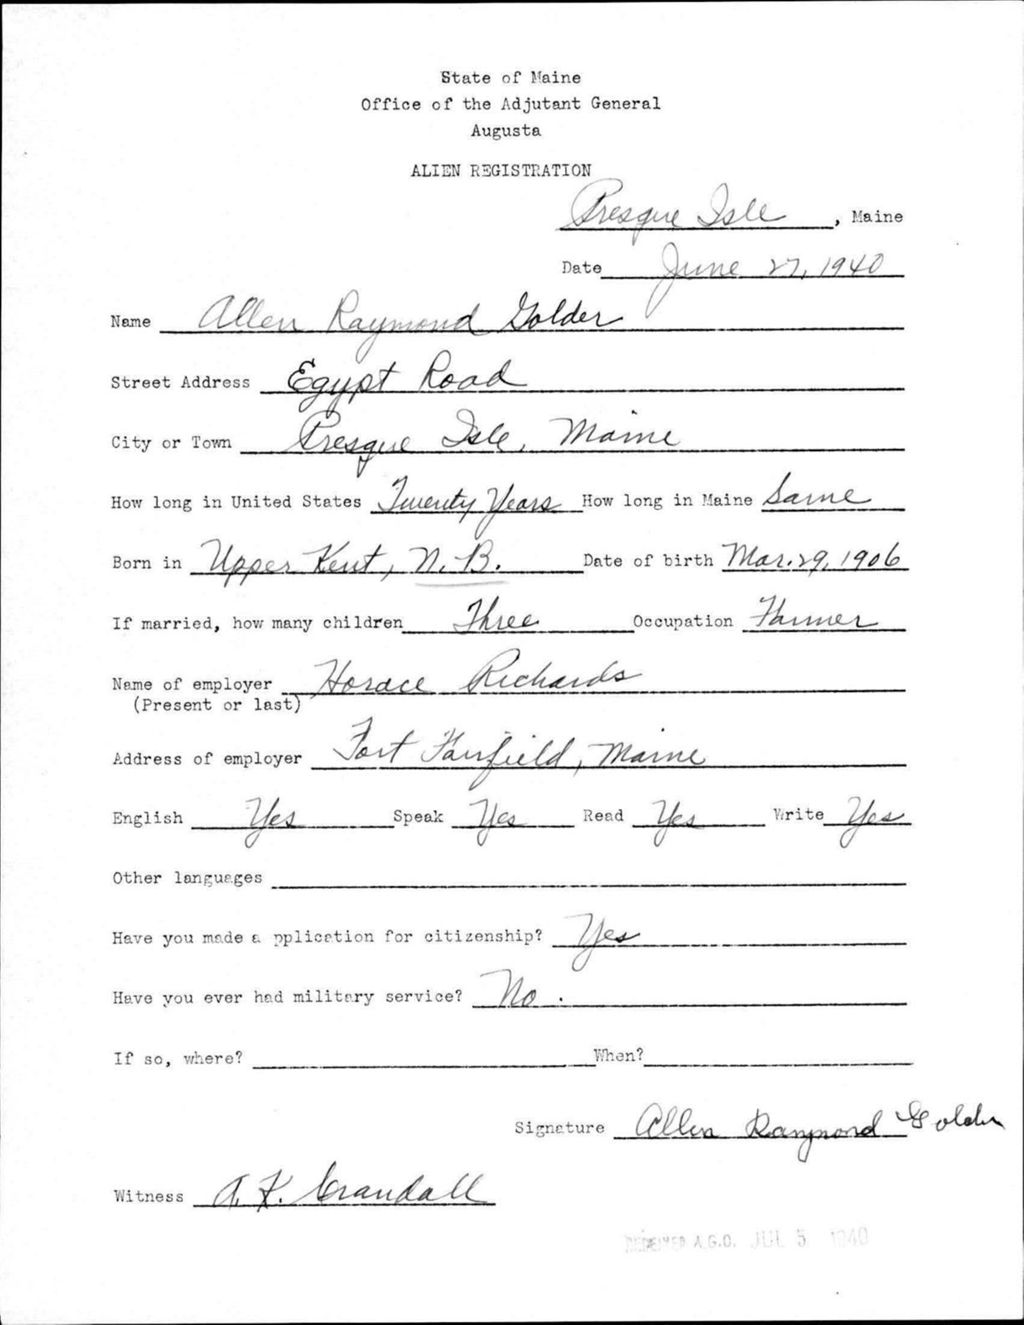 State of Maine
Office of the Adjutant General
Augusta
ALIEN REGISTRATION
Presque Isle, Maine
Date June 27, 1940
Name Allen Raymond Golder
Street Address Egypt Road
City or Town Presque Isle, Maine
How long in United States Twenty Years How long in Maine Same
Born in Upper Kent, N.B. Date of birth Mar. 29, 1906
If married, how many children Three Occupation Farmer
Name of employer Horace Richards
(Present or last)
Address of employer Fort Fairfield, Maine
English Yes Speak Yes Read Yes Write Yes
Other languages
Have you made a pplication for citizenship? Yes
Have you ever had military service? No.
If so, where? When?
Signature Allen Raymond Golder
Witness A. F. Crandall
RECEIVED A.G.O. JUL 5 1940